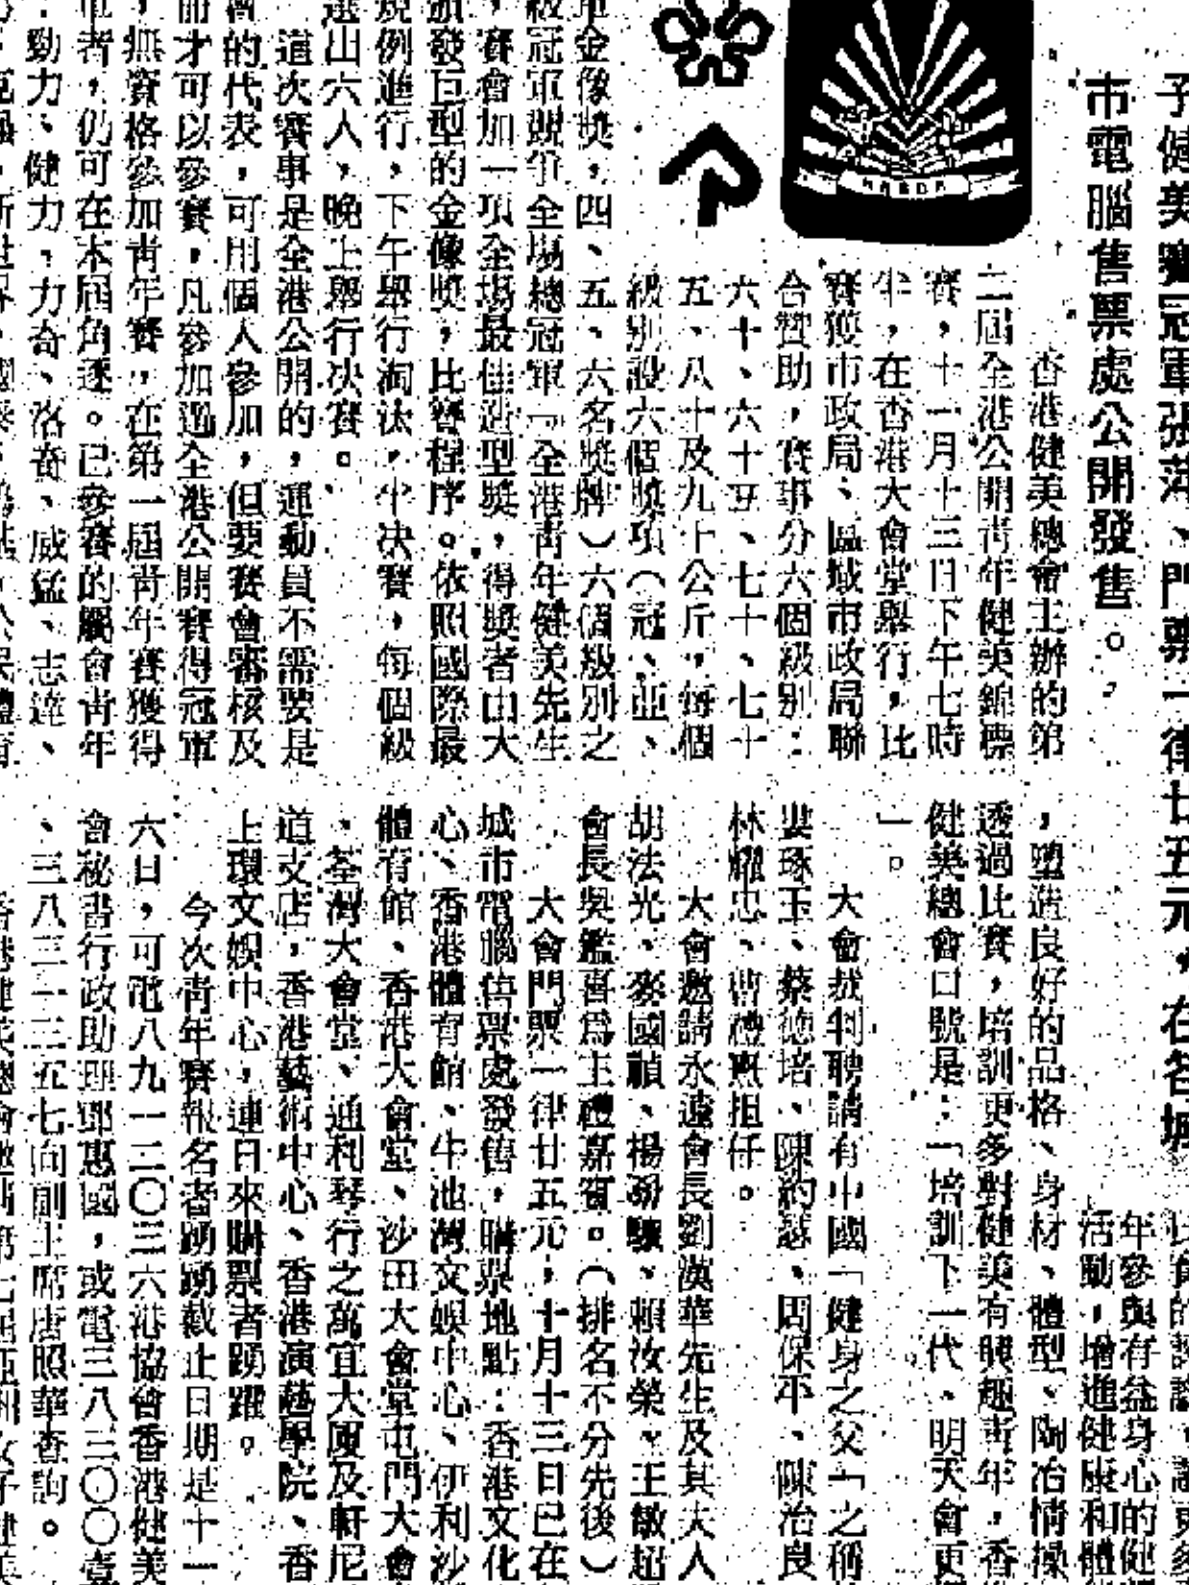 子健美賽冠軍張萍、門票一律廿五元，在各城
市電腦售票處公開發售。
HABBA
香港健美總會主辦的第
二屆全港公開青年健美錦標
賽，十一月十三日下午七時
半，在香港大會堂舉行，比
賽獲市政局、區域市政局聯
合贊助，賽事分六個級別：
六十、六十五、七十、七十
五、八十及九十公斤，每個
級別設六個獎項（冠、亞、
軍金像獎，四、五、六名獎牌）六個級別之
級冠軍競爭全場總冠軍「全港青年健美先生
，賽會加一項全場最佳造型獎，得獎者由大
頒發巨型的金像獎，比賽程序。依照國際最
規例進行，下午舉行淘汰，半決賽，每個級
選出六人，晚上舉行決賽。
這次賽事是全港公開的，運動員不需要是
會的代表，可用個人參加，但要賽會審核及
才可以參賽，凡參加過全港公開賽得冠軍
，無資格參加青年賽，在第一屆青年賽獲得
者，仍可在本屆角逐。已參賽的屬會青年
：勁力、健力，力奇、洛奇、威猛、志達、
，塑造良好的品格、身材、體型、陶冶情操
透過比賽，培訓更多對健美有興趣青年，香
健美總會口號是：「培訓下一代、明天會更
」。
大會裁判聘請有中國「健身之父」之稱
婁琢玉、蔡德培、陳約瑟、周保平、陳冶良
林耀忠、曹禮熙担任。
大會邀請永遠會長劉漢華先生及其夫人
胡法光、麥國禎、楊勁驤、賴汝榮、王敏超
會長吳鑑喜為主禮嘉賓。（排名不分先後）
大會門票一律廿五元，十月十三日已在
城市電腦售票處發售，購票地點：香港文化
心、香港體育館、牛池灣文娛中心、伊利沙
體育館、香港大會堂、沙田大會堂屯門大會
、荃灣大會堂、通利琴行之萬宜大廈及軒尼
道支店，香港藝術中心、香港演藝學院、香
上環文娛中心，連日來購票者踴躍。
今次青年賽報名者踴躍截止日期是十一
六日，可電八九一二〇三六港協會香港健美
會秘書行政助理鄧惠國，或電三八三〇〇壹
、三八三一三五七向副主席唐照華查詢。
年參與有益身心的健
活動，增進健康和體